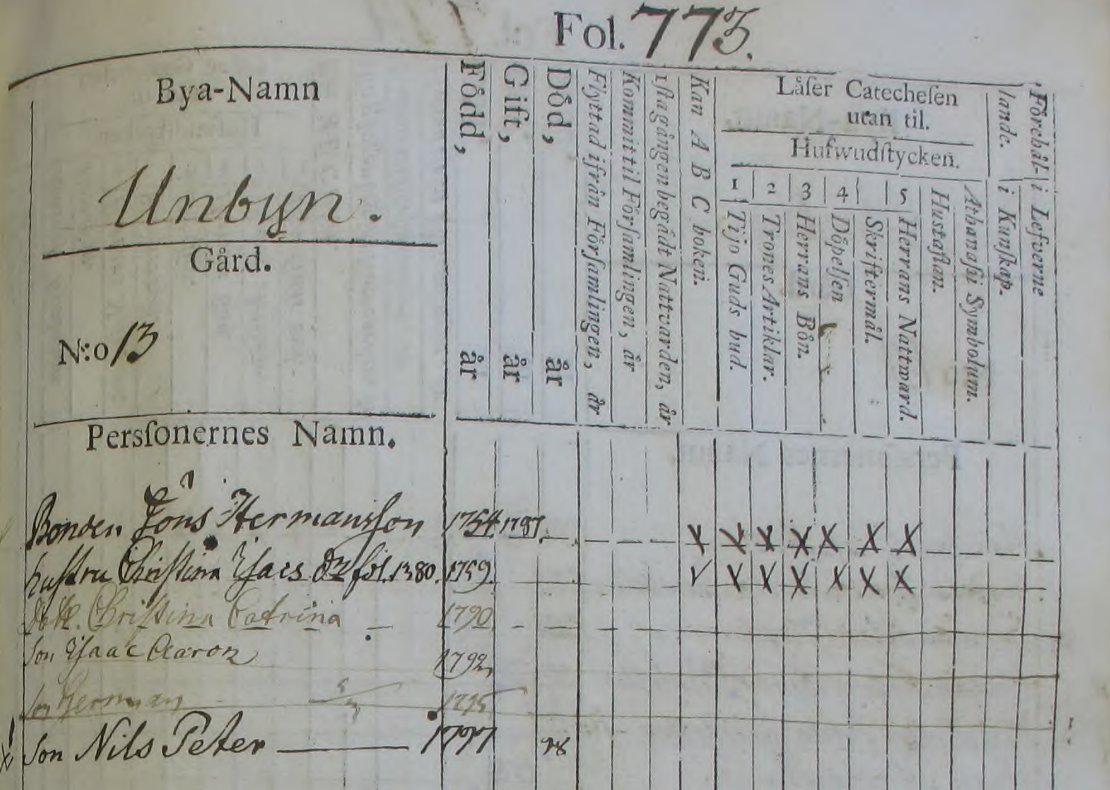 Fol. 773.
Bya-Namn
Unbyn.
Gård.
N:o 13
Persſonernes Namn.
Född, år
Gift, år
Död, år
Flyttad ifrån Förſamlingen, år
Kommit til Förſamlingen, år
1ſta gången begådt Nattvarden, år
Kan A B C boken.
Låſer Catecheſen
utan til.
Hufwudſtycken.
1 2 3 4 5
Tijo Guds bud.
Trones Artiklar.
Herrans Bön.
Döpelſen
Skriftermål.
Herrans Nattward.
Hustaflan.
Athanaſii Symbolum.
i Kunſkap.
i Lefverne
Förehål-
lande.
Bonden Jöns Hermansſon 1754 1787. x x x x x x x
huſtru Chriſtina Iſacs dr fol. 1380. 1759. v x x x x x x
dott. Chriſtina Catrina 1790
ſon Iſaac Aaron 1792
ſon Herman 1795
x ſon Nils Peter 1797 98